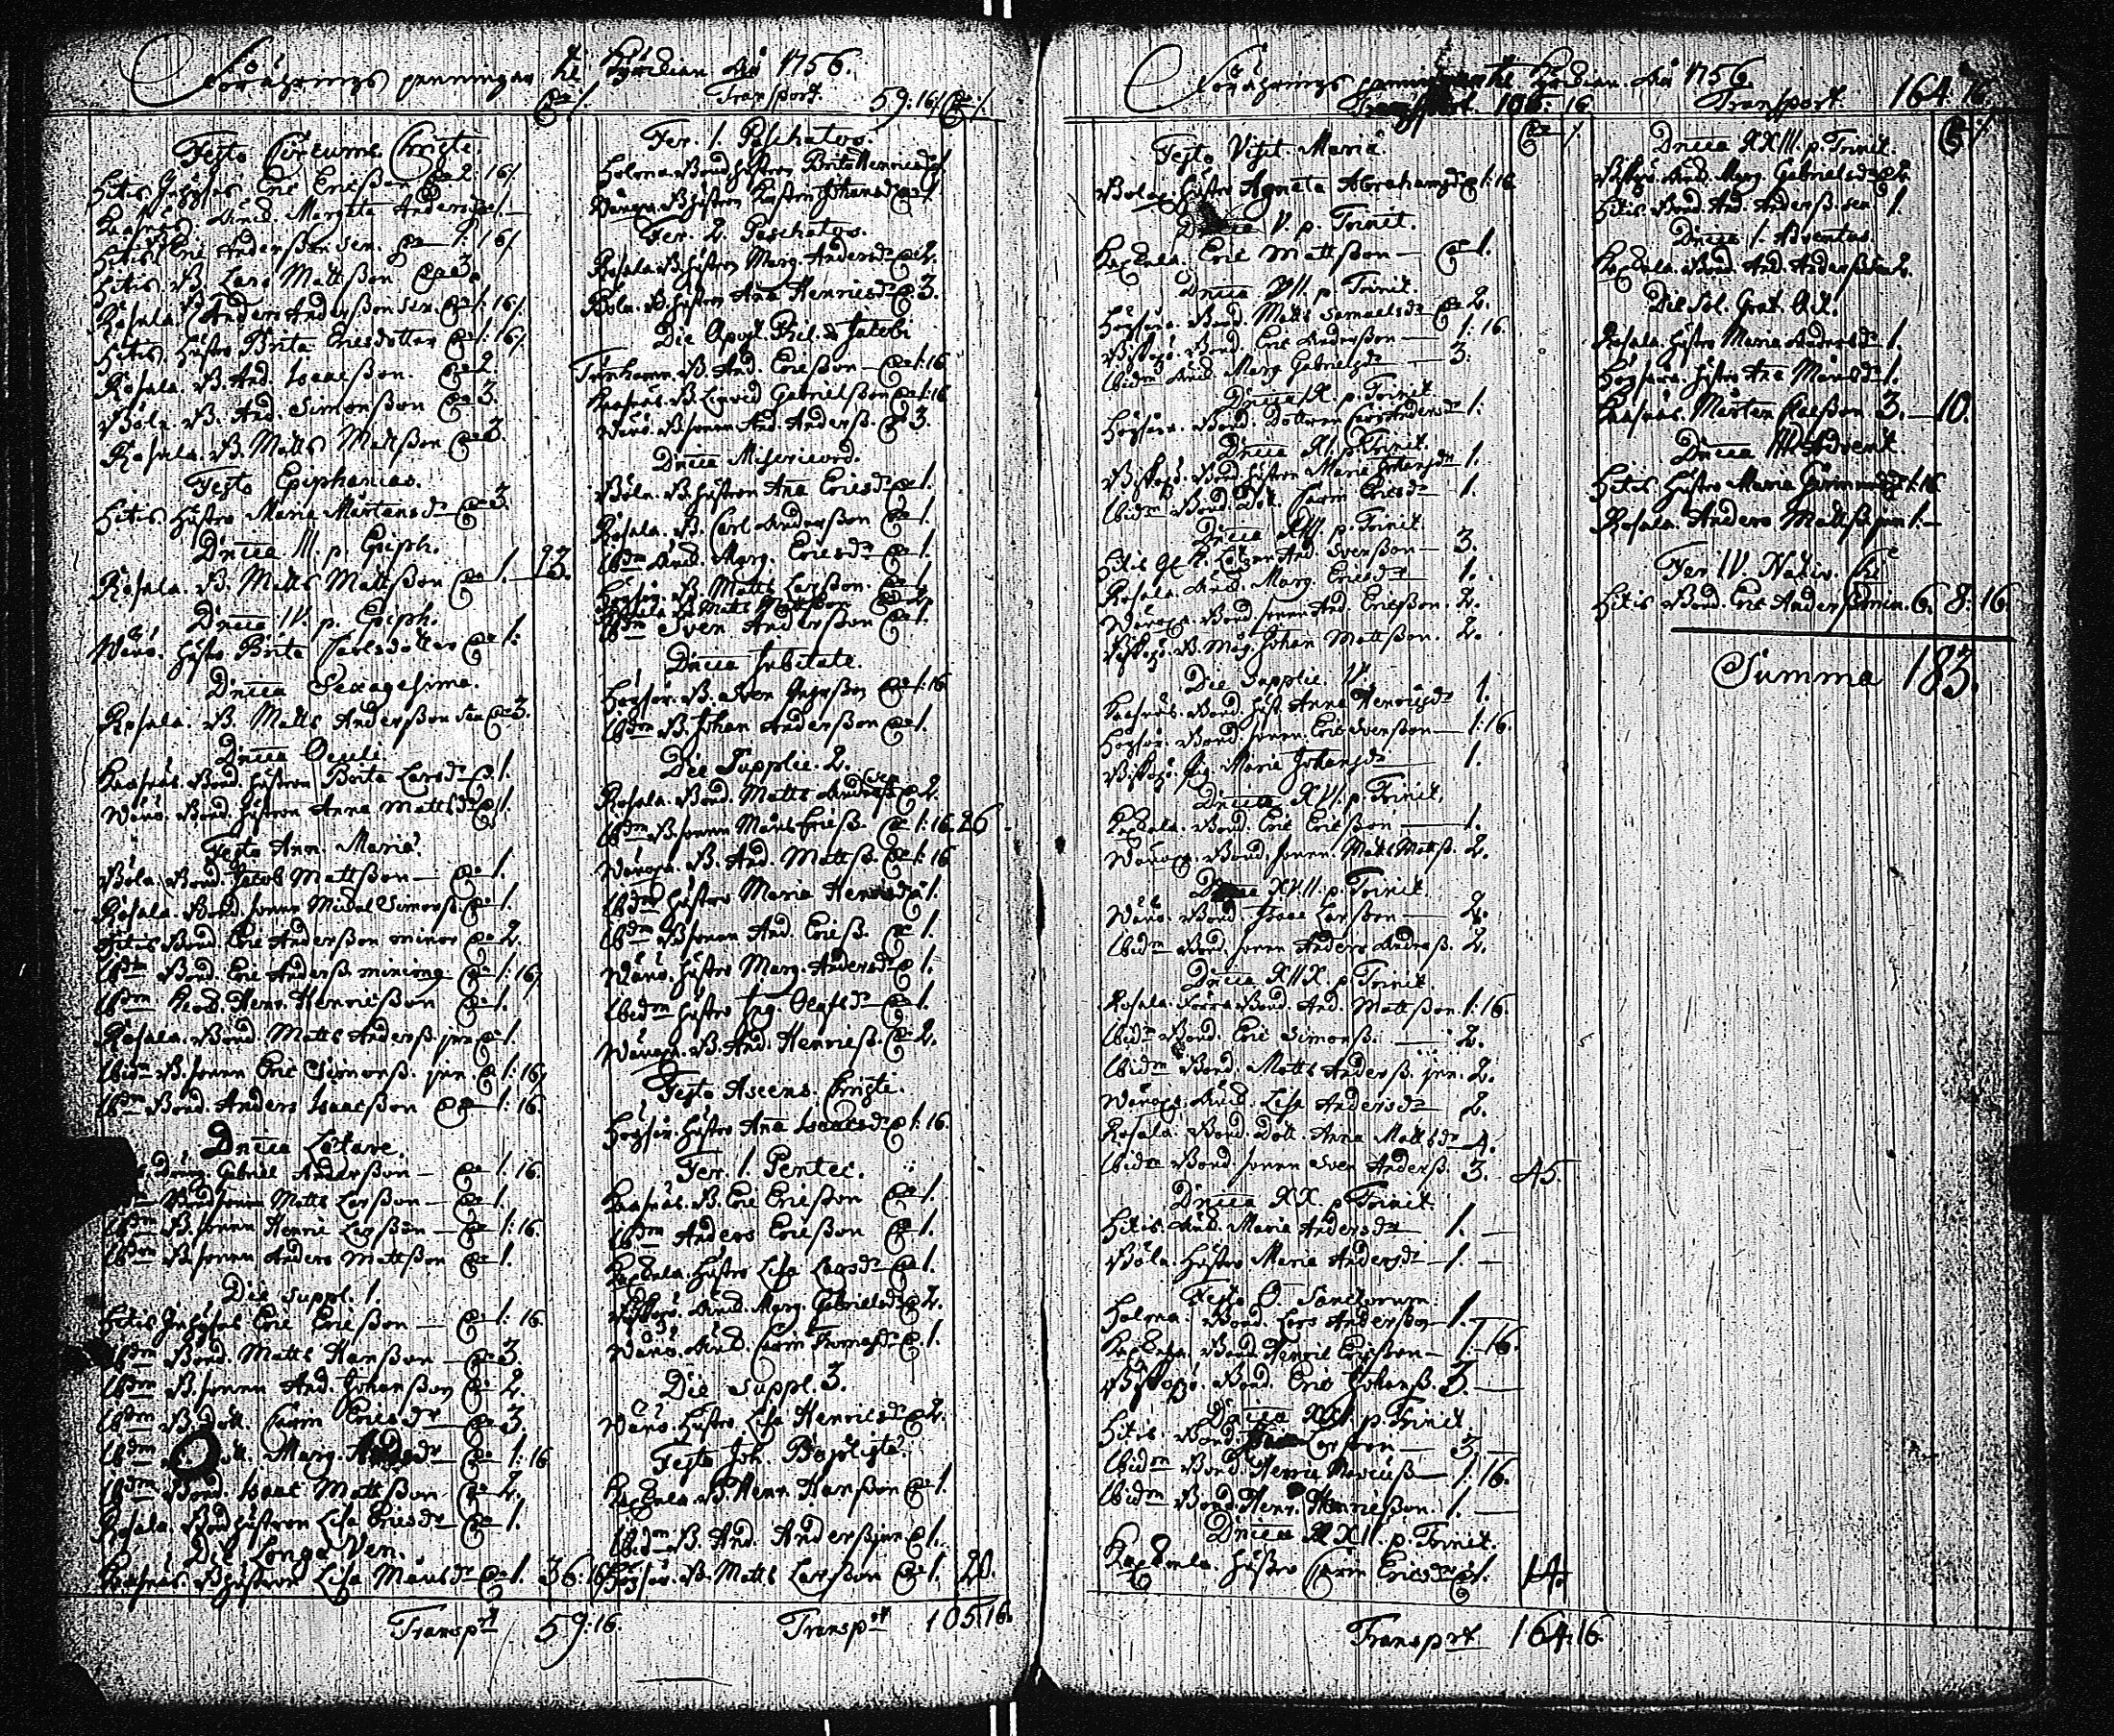 Förährings penningar til Kÿrckian Åhr 1756.
Festo Circumc. Christi.
Hitis Inhÿses Eric Ericsson 2. 16
Kasnäs. Änck. Margeta Andersdr 1. —
Hitis Eric Andersson sen. 1. 16
Hitis. B. Lars Mattsson 3.
Rosala. Anders Andersson sen. 1. 16
Hitis. Hustro Brita Ericsdotter 1. 16
Rosala. B. And. Isaacsson. 2.
Böle. B. And. Simonsson 3.
Rosala. B. Matts Mattsson 3.
Festo Epiphanias.
Hitis. Hustro Maria Mårtensdr 3.
Dnica III. p. Epiph.
Rosala. B. Matts Mattsson 1. 23.
Dnica IV. p. Epiph.
Wänö. Hustro Brita Carlsdotter 1.
Dnica Sexagesima.
Rosala. B. Matts Andersson sen 3.
Dnica Oculi.
Kasnäs. Bond. hustron Brita Larsdr 1.
Wänö. Bond. hustron Anna Mattsdr 1.
Festo Ann. Mariæ.
Böle. Bond. Jacob Mattsson — 1.
Rosala. Bond. sonen Michel Simonss. 1.
Hitis Bond. Eric Andersson minor 2.
Ibdm Bond. Eric Anderss. 1: 16
Ibdm Henr. Henricsson 1.
Rosala. Bond. Matts Anderss. jun 1.
Ibidm B. sonen Eric Simonss. jun. 1: 16
Ibdm Bond. Anders Isaacsson 1: 16.
Dnica Lætare.
Dräng Gabriel Andersson — 1: 16.
Matts Larsson — 1.
Ibdm B. sonen Henric Larsson — 1: 16.
Ibdm B. sonen Anders Mattsson 1.
Die Suppl. 1.
Hitis Inhÿses Eric Ericsson — 1: 16.
Ibdm Bond. Matts Hansson — 3.
Ibdm B. sonen And. Johansson 2.
Ibdm B. Dott. Carin Ericsdr — 3.
Ibdm Marg. — 1: 16
Ibdm Bond. Isaac Mattsson 2.
Rosala. Bond hustron Lisa Ericsdr 1.
Die Longa Ven.
Kasnäs. B. hustron Lisa Månsdr 1. 36: 16
Transprt 59: 16.
Transport. 59: 16
Fer. 1. Paschatos.
Holma. Bond hustron Brita Henricsdr 1
Wänoxa. B. hustron Karstin Johansdr 1
Fer. 2. Paschatos.
Rosala. B. hustron Marg. Andersdr 2.
Böle. B. hustron Ana Henricsdr 3.
Die Apost. Phil. & Jacobi
Tunhamn. B. And. Ericsson 1: 16
Kasnäs. B. Gabrielsson 1: 16
Wänö. B. sonen And. Anderss. 3.
Dnica Misericord.
Böle. B. hustron Ana Ericsdr 1.
Rosala. B. Carl Andersson 1.
Ibdm Änck. Marg. Ericsdr 1.
Högsår. B. Matts Larsson. 1.
Rosala. B. Matts Mattsson
Ibdm Sven Andersson 1.
Dnica Jubilate.
Högsår. B. Sven 1: 16
Ibdm B. Johan Andersson 1.
Die Supplic. 2.
Rosala. Bond. Matts Anderss sen 2.
Ibdm B. sonen Måns Ericss. 1: 16. 26
Wänoxa. B. And. Mattss. 1: 16
Ibdm Hustro Maria Henricsdr 1.
Ibdm B. sonen And. Ericss. 1.
Wänö. Hustro Marg. Andersdr 1.
Ibidm Hustro Ing. Olofsdr 1.
Wänoxa. B. And. Henricss. 2.
Festo Ascens. Christi.
Högsår. Hustro Ana Isaacsdr 1: 16.
Fer. 1. Pentec.
Kasnäs. B. Eric Ericsson 1.
Ibdm Anders Ericsson 1.
Hustro Lisa Larsdr 1.
Änck. Marg. Gabrielsdr 2.
Wänö. Änck. Carin Thomasdr 1.
Die Suppl. 3.
Wänö. Hustro Lisa Henricsdr 2.
Festo Joh. Baptistæ.
B. Henr. Hansson 1.
Ibidm B. And. Anderss. jun 1.
Högsår. B. Matts Larsson 1. 20.
Transprt 105: 16.
Förährings penningar til Kÿrckian Åhr 1756
Transport. 105. 16
Festo Visit. Mariæ.
Hustro Agneta Abrahamsdr 1: 16
Dnica V. p. Trinit.
Eric Mattsson — 1.
Dnica VII. p. Trinit.
Högsåra. Bond. Matts Samuelsdr 2.
Bond. Eric Andersson — 1: 16.
Ibidm Änck. Marg. Gabrielsdr — 3.
Dnica IX. p. Trinit.
Högsåra. Bond. Dottren Andersdr 1.
Dnica XI. p. Trinit.
Bond hustron Maria Johansdr 1.
Ibidm Bond. Dot. Carin Ericsdr 1.
Dnica XIII. p. Trinit.
Hitis And. Svensson — 3.
Rosala. Änck. Marg. Ericsdr — 1.
Wänoxa. Bond. sonen And. Ericsson. 2.
B. Måg. Johan Mattsson. 2.
Die Supplic. IV.
Kasnäs. Bond. hust. Anna Henricsdr 1.
Högsår. Bond. sonen. Eric Svensson — 1: 16.
Pig. Maria Johansdr — 1.
Dnica XVI. p. Trinit.
Bond. Eric Ericsson — 1.
Wänoxa. Bond. sonen. Matts Mattss. 2.
Dnica XVII. p. Trinit.
Wänö. Bond. Isaac Larsson — 2.
Ibidm Bond. sonen Anders Anderss. 2.
Dnica XIIX. p. Trinit.
Rosala. Förra Bond. And. Mattsson. 1: 16.
Ibidm Bond. Eric Simonss. — 2.
Ibidm Bond. Matts Anderss. jun. 2.
Wänoxa. Änck. Lisa Andersdr 2.
Rosala. Bond. Dott. Anna Mattsdr 4.
Ibidm Bond. sonen Sven Anderss. 3. 45.
Dnica XX. p. Trinit.
Hitis. Änck. Maria Andersdr 1. —
Böle. Hustro Maria Andersdr — 1. —
Festo O. Sanctorum.
Holma. Bond. Lars Andersson — 1. —
Bond. Henric Ericsson — 1. 16.
Bond. Eric Johanss. 3. —
Dnica XXI. p. Trinit.
Hitis. Bond. Larsson — 3. —
Ibidm Bond. Henric — 1. 16.
Ibidm Bond. Henr. Henricsson. 1. —
Dnica XXII. p. Trinit.
Hustro Carin Ericsdr 1. 14.
Transprt 164: 16.
Transport. 164. 16.
Dnica XXIII. p. Trinit.
Änck. Marg. Gabrielsdr 2.
Hitis Bond. And. Anderss. sen. 1.
Dnica 1. Adventus.
Bond. And. Anderss. 2.
Die Sol. Grat. Act.
Rosala. Hustro Maria Andersdr 1.
Högsåra. Hustro Ana Månsdr 1.
Kasnäs. Mårten 3. — 10.
Dnica III. Advent.
Hitis Hustro Maria 1: 16
Rosala. Anders Mattss. jun 1. —
Fer. IV. Nativ. Chr.
Hitis Bond. Eric Anderss min. 6. 8: 16.
Summa 183.